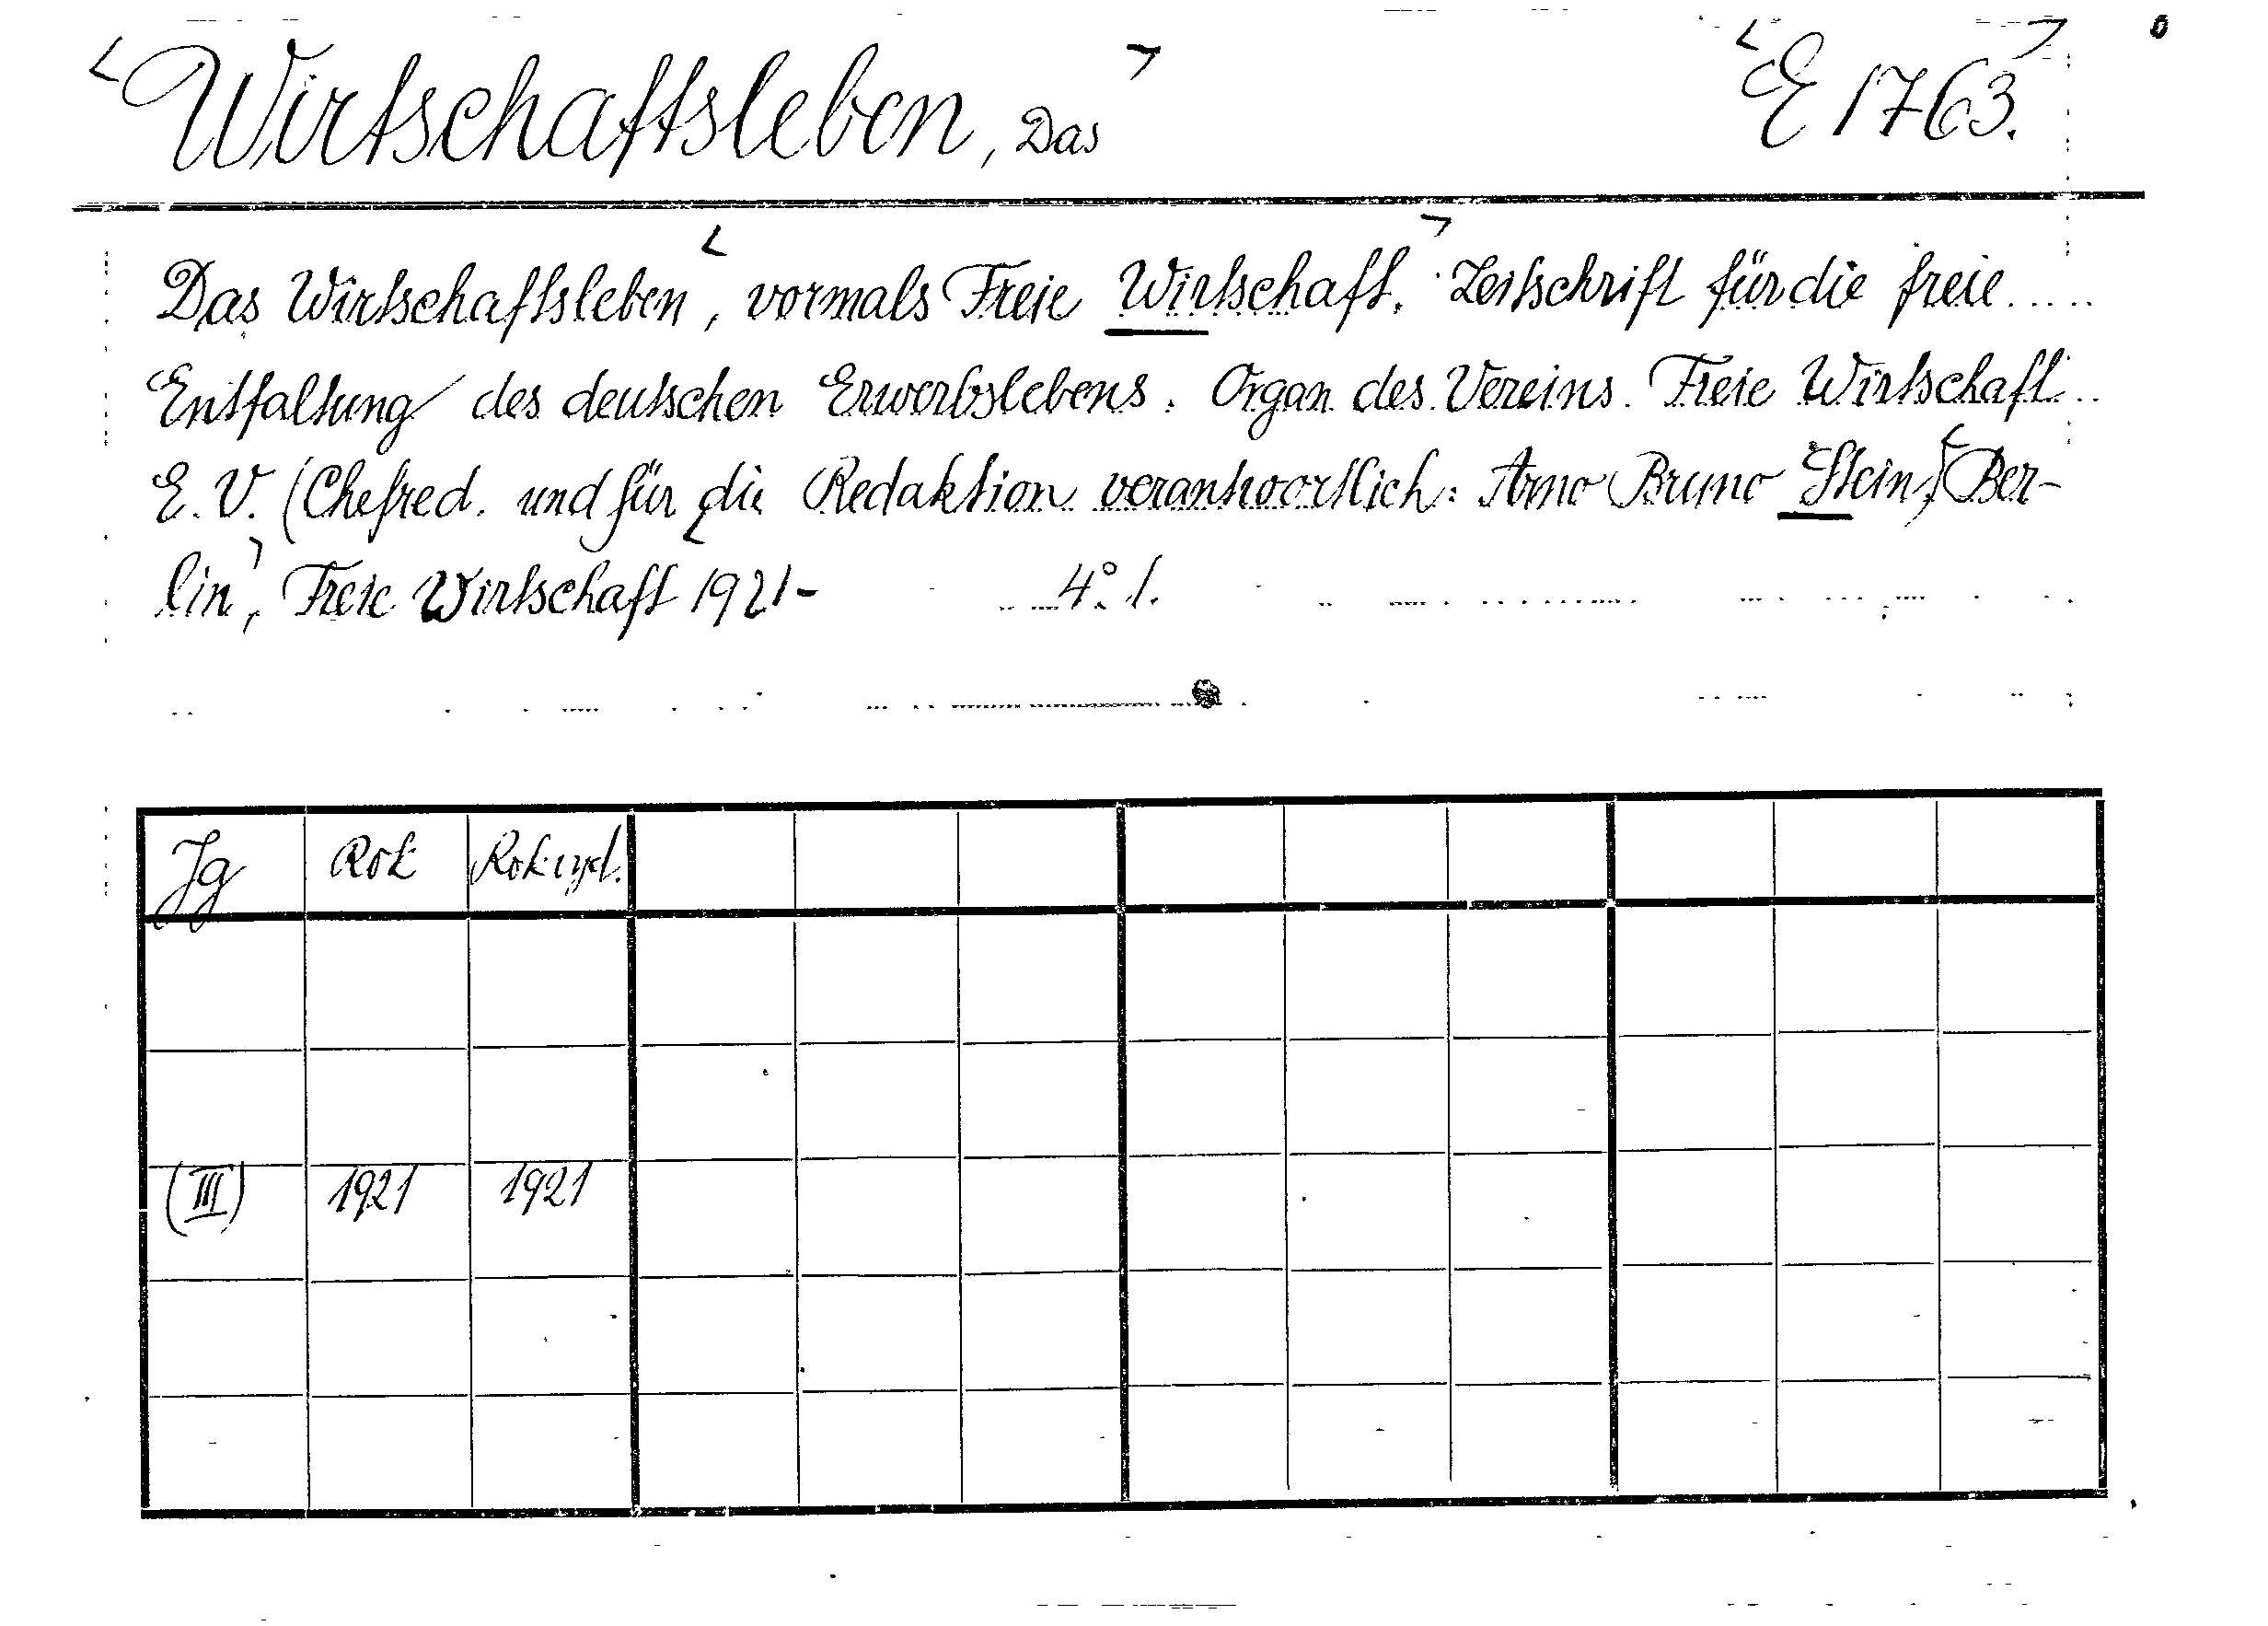 <Wirtschaftsleben, Das> <E 1763.>
Das Wirtschaftsleben, <vormals Freie Wirtschaft.> Zeitschrift für die freie
Entfaltung des deutschen Erwerbslebens. Organ des Vereins Freie Wirtschaft
E. V. (Chefred. und für die Redaktion verantwortlich: Arno Bruno Stein) <Ber-
lin>, <Freie Wirtschaft 1921- 4° l.
Jg Rok Rok wyd.
(III) 1921 1921